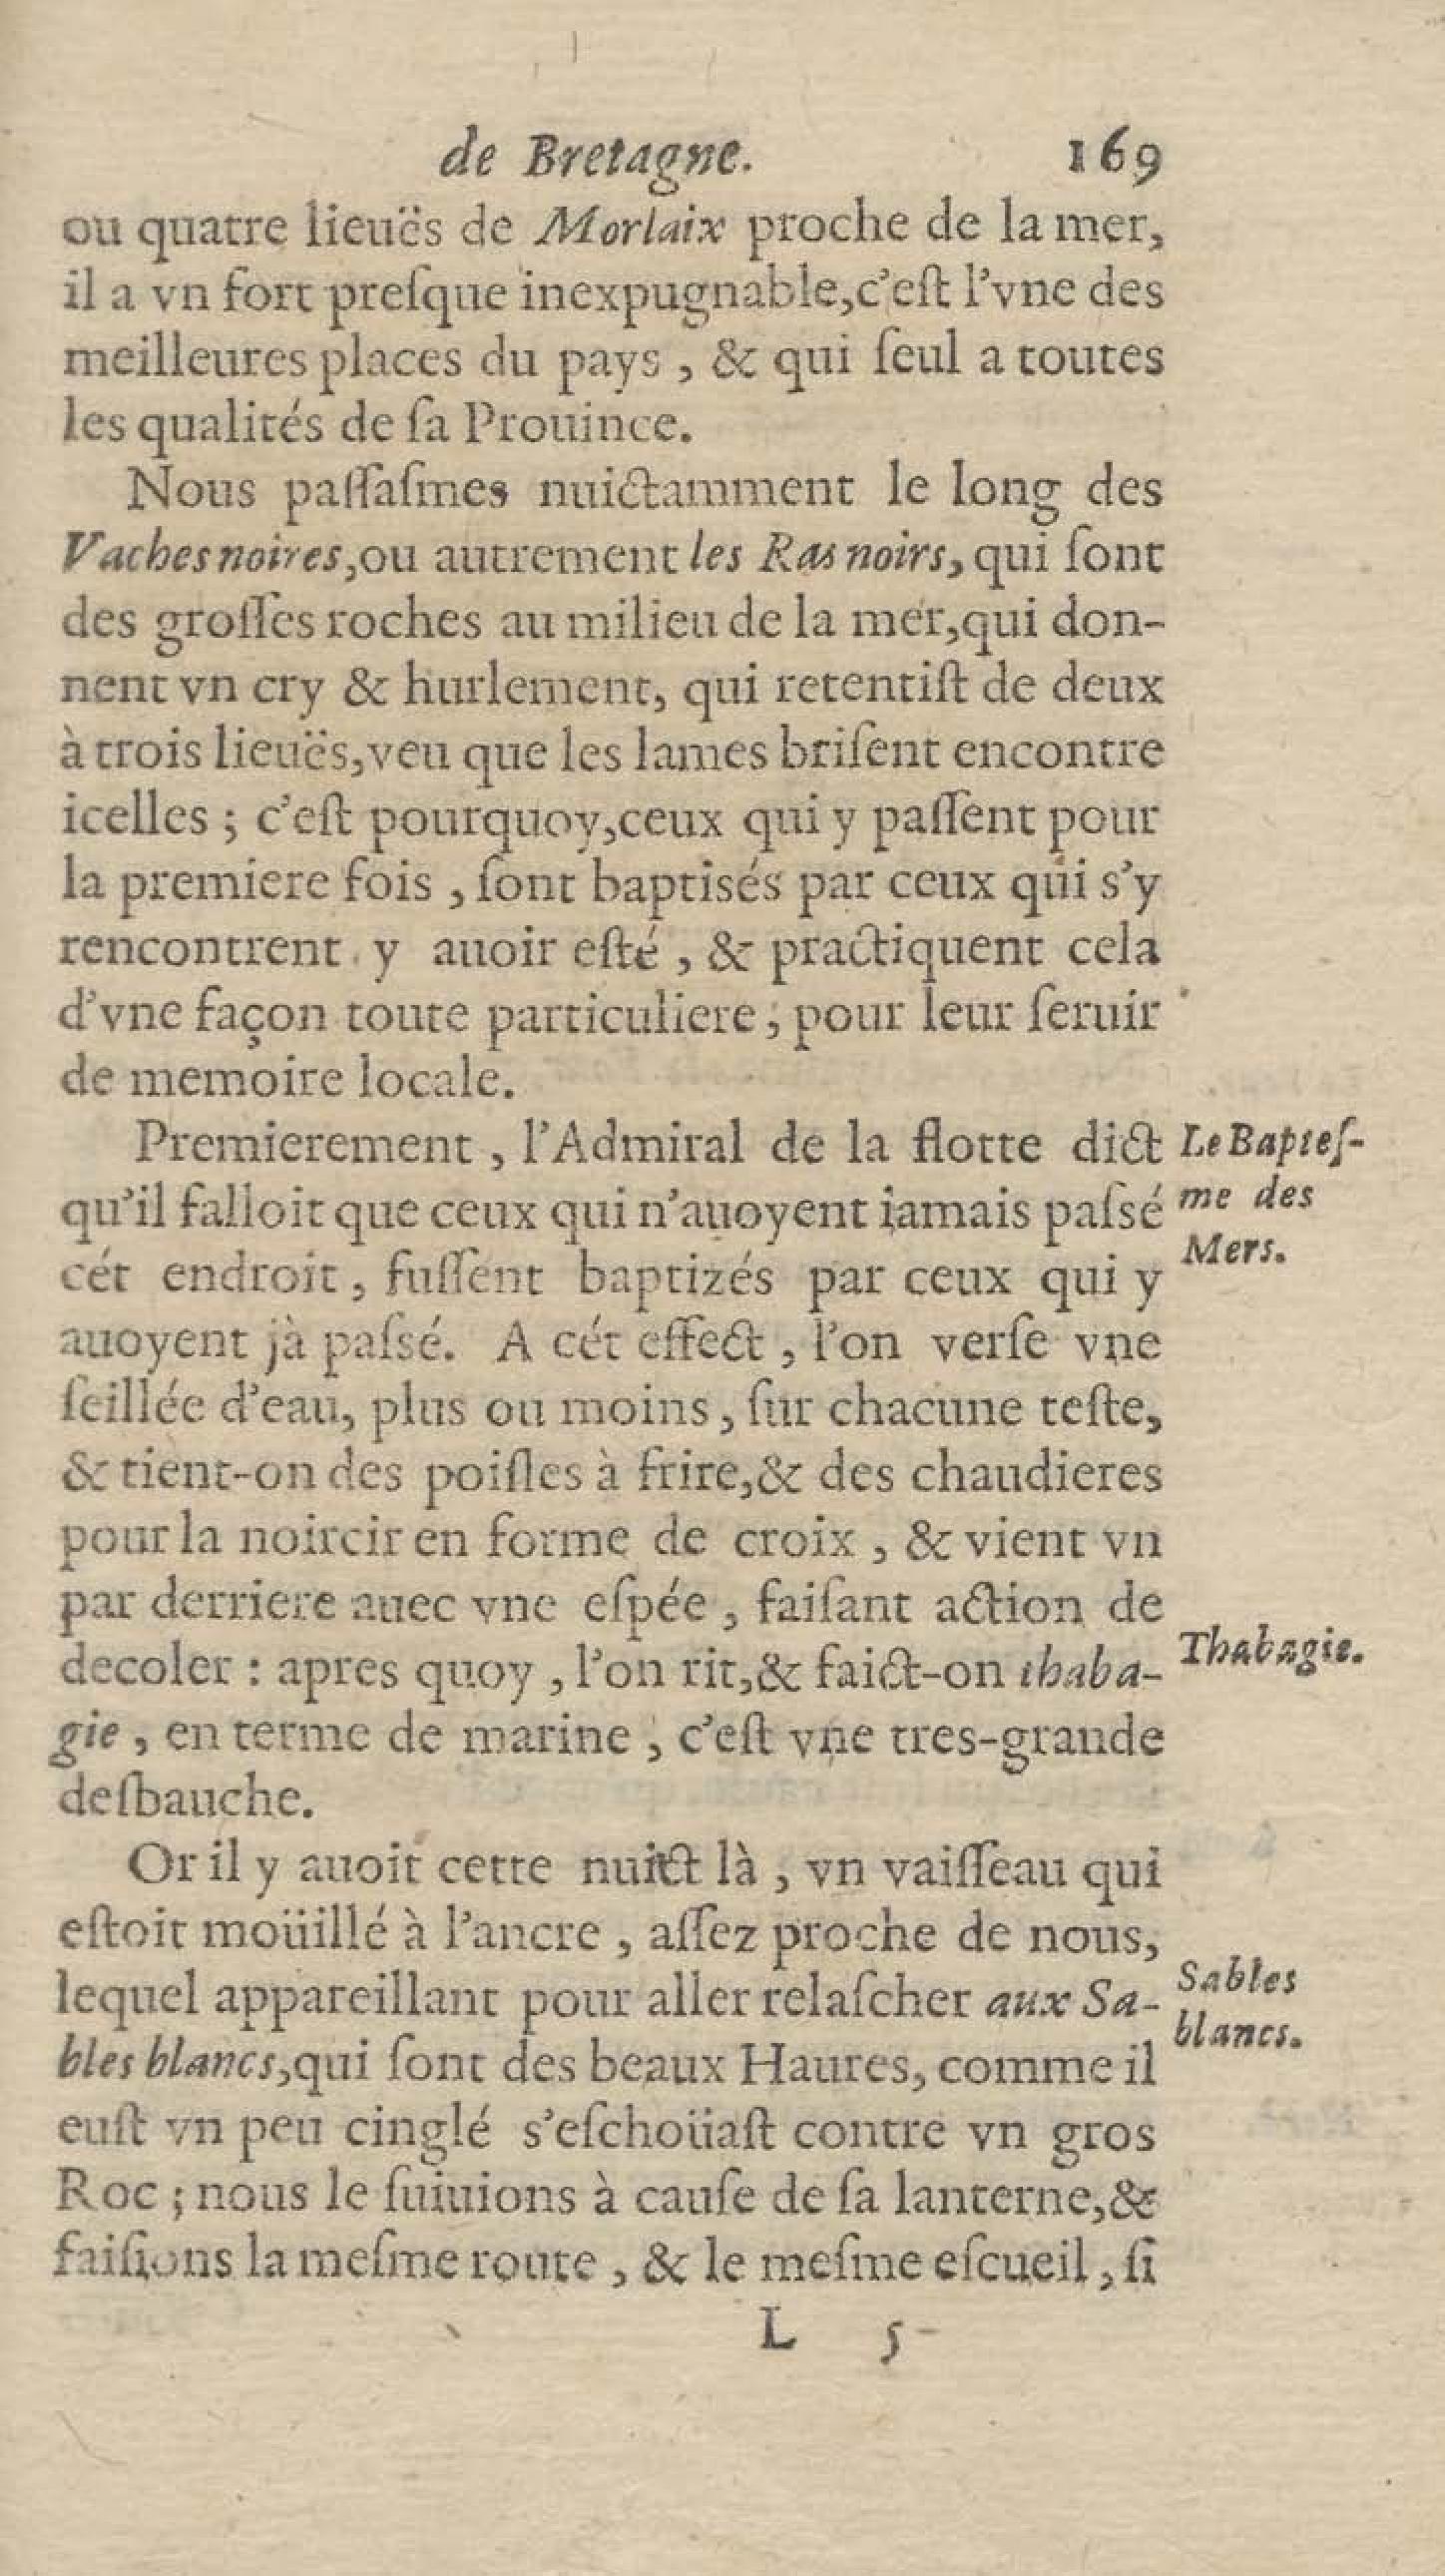 de Bretagne. 169
ou quatre lieuës de Morlaix proche de la mer,
il a vn fort preſque inexpugnable,c'eſt l'vne des
meilleures places du pays , & qui ſeul a toutes
les qualités de ſa Prouince.
Nous paſſaſmes nuictamment le long des
Vaches noires,ou autrement les Ras noirs, qui ſont
des groſſes roches au milieu de la mer,qui don-
nent vn cry & hurlement, qui retentiſt de deux
à trois lieuës,veu que les lames briſent encontre
icelles ; c'eſt pourquoy,ceux qui y paſſent pour
la premiere fois , ſont baptisés par ceux qui s'y
rencontrent y auoir eſté , & practiquent cela
d'vne façon toute particuliere ; pour leur ſeruir
de memoire locale.
Premierement , l'Admiral de la flotte dict
Le Bapteſ-
qu'il falloit que ceux qui n'auoyent iamais paſsé
me des
cét endroit , fuſſent baptizés par ceux qui y
Mers.
auoyent jà paſsé. A cét effect , l'on verſe vne
ſeillée d'eau, plus ou moins , ſur chacune teſte,
& tient-on des poiſles à frire,& des chaudieres
pour la noircir en forme de croix , & vient vn
par derriere auec vne eſpée , faiſant action de
decoler : apres quoy , l'on rit,& faict-on thaba-
Thabagie.
gie , en terme de marine , c'eſt vne tres-grande
deſbauche.
Or il y auoit cette nuict là , vn vaiſſeau qui
eſtoit moüillé à l'ancre , aſſez proche de nous,
lequel appareillant pour aller relaſcher aux Sa-
Sables
bles blancs,qui ſont des beaux Haures, comme il
blancs.
euſt vn peu cinglé s'eſchoüaſt contre vn gros
Roc ; nous le ſuiuions à cauſe de ſa lanterne,&
faiſions la meſme route , & le meſme eſcueil , ſi
L 5